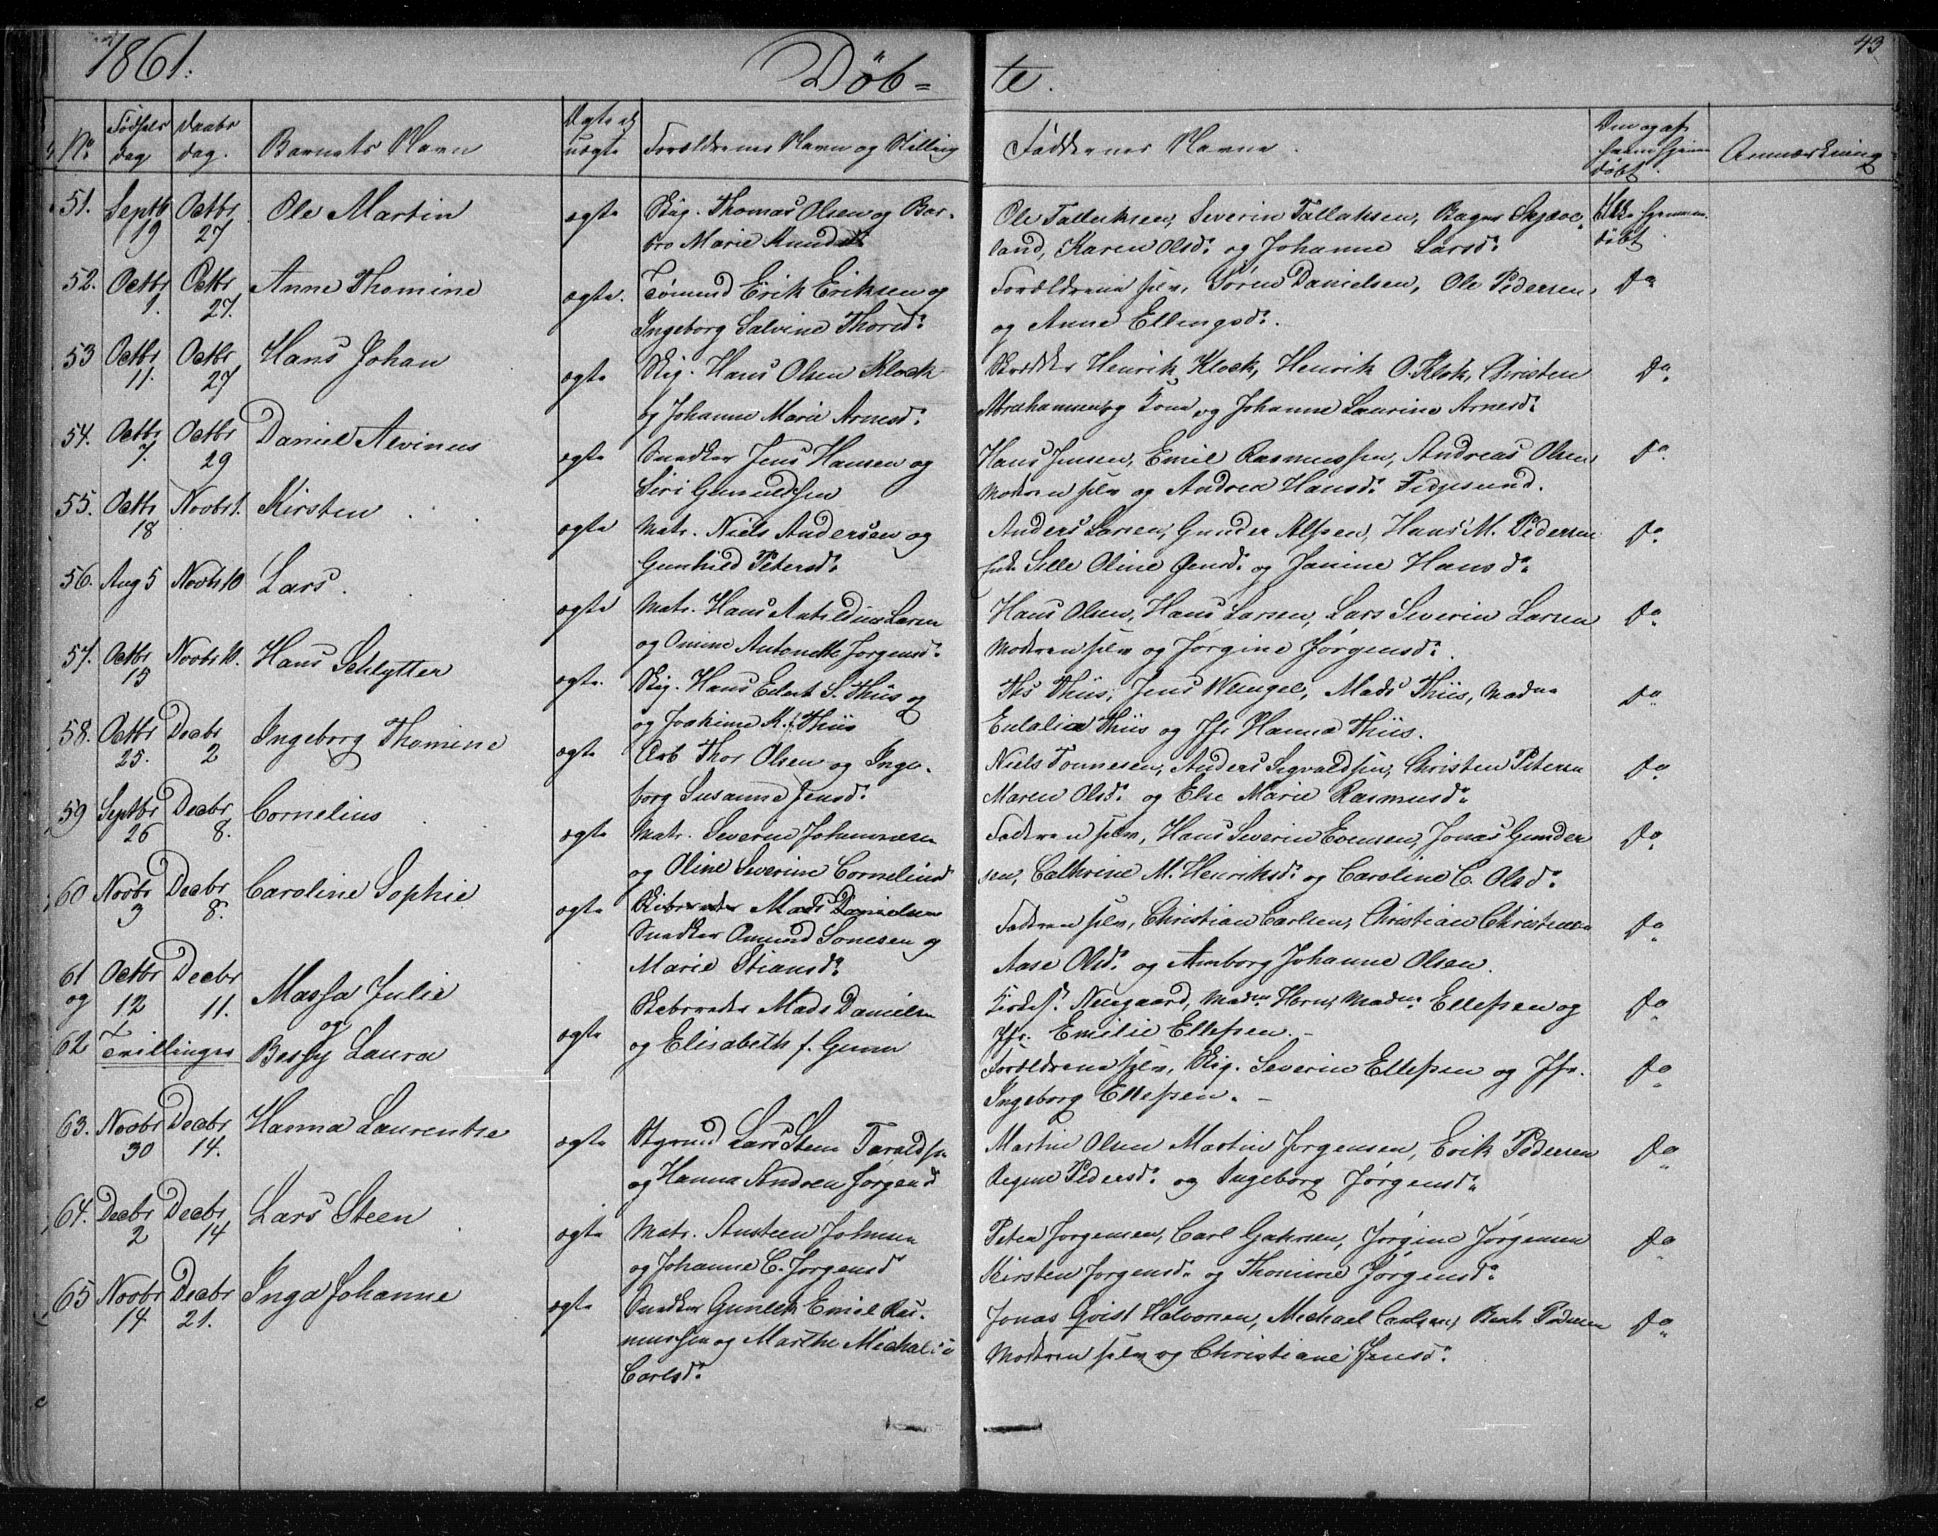 1861.
Døb-
te.
43
No
Fødsels dag
Daabs dag.
Barnets Navn
Ægte el uægte
Forældrenes Navn og Stilling
Faddernes Navne.
døbt
Anmærkning
51. Septbr 19 Octbr 27 Ole Martin ægte Skig. Thomas Olsen og Bar-
bro Marie Knudsd
Ole Tallaksen, Severin Tallaksen,
land, Karen Olsd. og Johanne Larsd.
Ikke hjemme-
døbt
52. Octbr 1. Octbr 27. Anne Thomine ægte. Tømmd Erik Eriksen og
Ingeborg Salvine Thorsd.
Forældrene selv, Søren Danielsen, Ole Pedersen,
og Anne Ellingsd.
Do
53 Octbr 11. Octbr 27 Hans Johan ægte Skig. Hans Olsen Klock
og Johanne Marie Arnesd.
Skrædder Henrik Klock, Henrik O. Klok, Christen
Abrahamsen og Kone og Johanne Laurine Arnesd.
Do
54. Octbr 7. Octbr 29 Daniel Alvinus ægte Snedker Jens Hansen og
Siri Gunuldsen
Hans Jensen, Emil Rasmussen, Andreas Olsen,
Moderen selv og Andrea Hansd. Tedjesund.
Do
55. Octbr 18 Novbr 1. Kirsten ægte Matr. Niels Andersen og
Gunhild Petersd.
Anders Larsen, Gunder Alfsen, Hans M. Pedersen
Enke Sille Oline Jensd. og Janine Hansd.
Do
56. Aug 5 Novbr 10 Lars. ægte Matr. Hans Larsen
og Omine Antonette Jørgensd.
Hans Olsen, Hans Larsen, Lars Severin Larsen
Moderen selv og Jørgine Jørgensd.
Do
57. Octbr 15 Novbr 10. Hans Schlytter ægte. Skig. Hans Eilert S. Thiis og
og Joakime M. f. Thiis
Ths Thiis, Jens Wengel, Mads Thiis, Madm
Eulalia Thiis og Jfr Hanna Thiis.
Do
58. Octbr 25. Decbr 2 Ingeborg Thomine ægte Arb Thor Olsen og Inge-
borg Susanne Jensd.
Niels Tonnesen, Anders Sigvaldsen, Christen Petersen
Maren Olsd. og Else Marie Rasmusd.
Do
59 Septbr 26 Decbr 8. Cornelius ægte Matr. Severin Johannesen
og Oline Severine Corneliusd
Faderen selv, Hans Severin Evensen, Jonas Gunder
sen, Cathrine M. Henriksd. og Caroline C. Olsd.
Do
60 Novbr 3 Decbr 8. Caroline Sophie ægte Rebsneder Mads Danielsen
Snedker Omund Sonesen og
Marie Stiansd.
Faderen selv, Christian Carlsen, Christian Christensen
Aase Olsd. og Amborg Johanne Olsen.
Do
61 og 62 Octbr 12 Decbr 11. Tvillinger
Massa Julie
og
Bessy Laura
ægte Rebsneder Mads Danielsen
og Elisabeth f. Gunn
Neegaard, Madm Horn, Madm Ellefsen og
Jfr. Emilie Ellefsen.
Do
Forældrene selv, Skig. Severin Ellefsen og Jfr.
Ingeborg Ellefsen.
Do
63. Novbr 30 Decbr 14. Hanna Laurentse ægte Styrmd Lars Steen Taraldsen
og Hanna Andrea Jørgensd
Martin Olsen Martin Jørgensen, Erik Pedersen
Regine Pedersd. og Ingeborg Jørgensd.
Do
64. Decbr 2 Decbr 14 Lars Steen ægte Matr. Austeen Johnsen
og Johanne C. Jørgensd
Peter Jørgensen, Carl Gahrsen, Jørgine Jørgensen
Kirsten Jørgensd. og Thomine Jørgensd.
Do
65 Novbr 14 Decbr 21. Inga Johanne ægte Snedker Gunleik Emil Ras-
mussen og Marthe Michalie
Carlsd.
Jonas Qvist Halvorsen, Michael Carlsen, Bent Pedersen
Moderen selv og Christiane Jensd.
Do